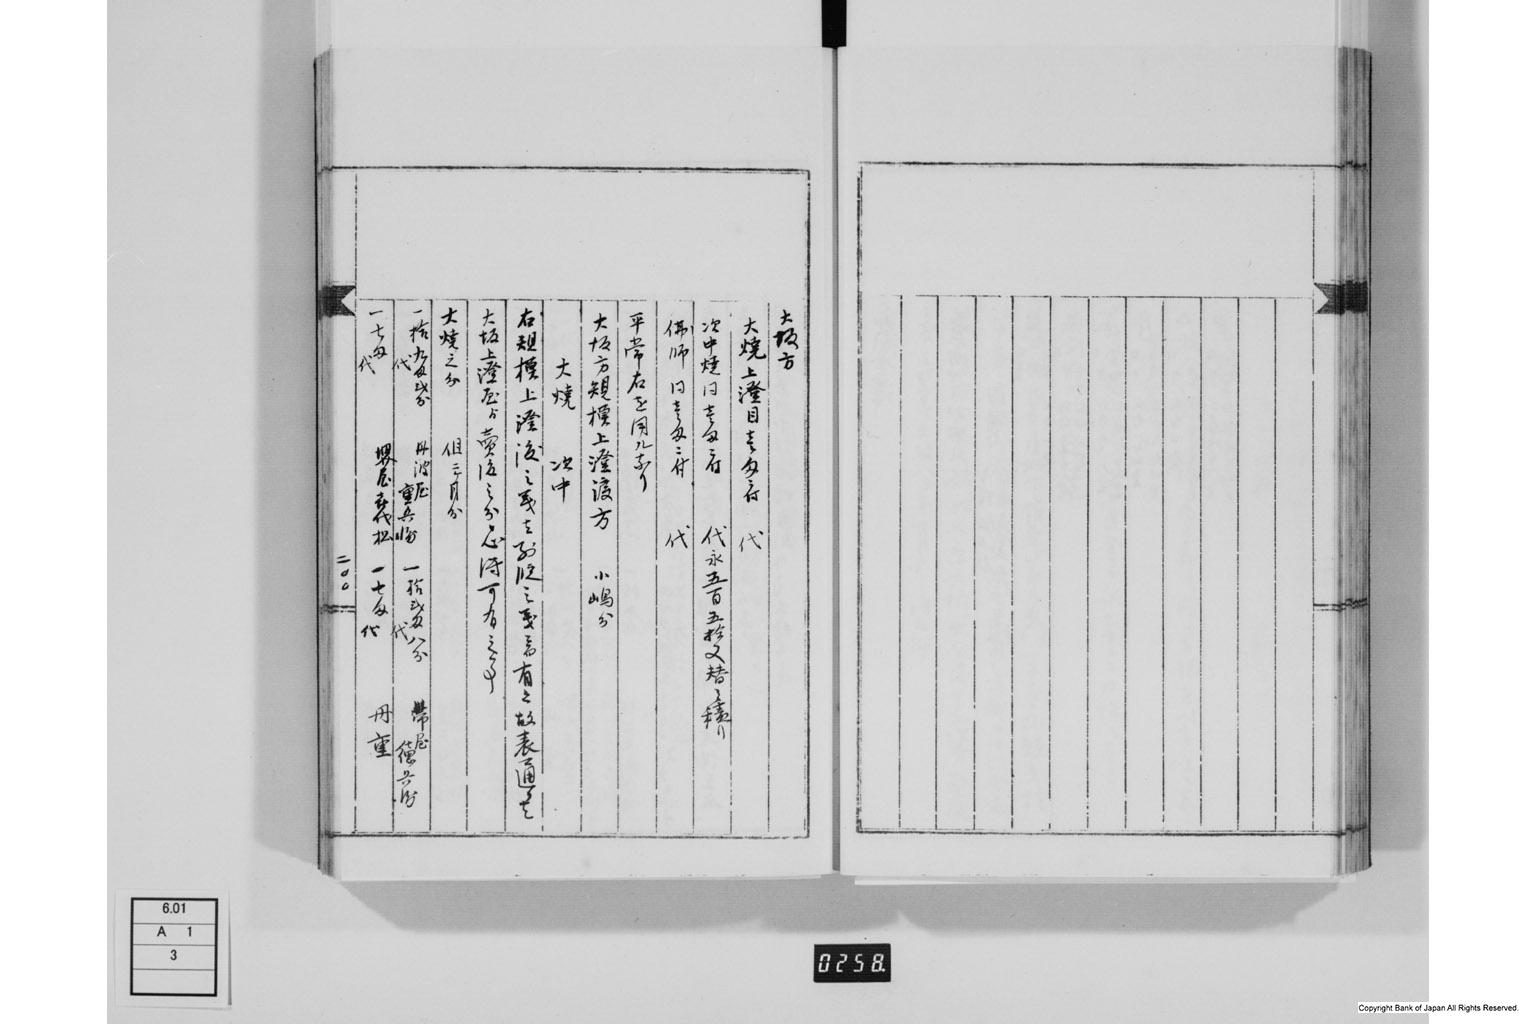 大坂方
大焼上澄目壱匁ニ付 代
次中焼同壱匁ニ付 代永五百五拾文替之積り
佛師同壱匁ニ付 代
平常右を用
大坂方規模上澄渡方 小嶋分
大焼 次中
右規模上澄渡之義 之義 有之故表通
大坂上澄屋 売渡之分 心得可有之事
大焼之分 但三月分
一拾九匁弐分 代 丹波屋重兵衛 一拾弐匁八分 代 帯屋徳兵衛
一七匁 代 堺屋喜代松 一七匁 代 丹重
二〇〇
6.01
A 1
3
0258
Copyright Bank of Japan All Rights Reserved.